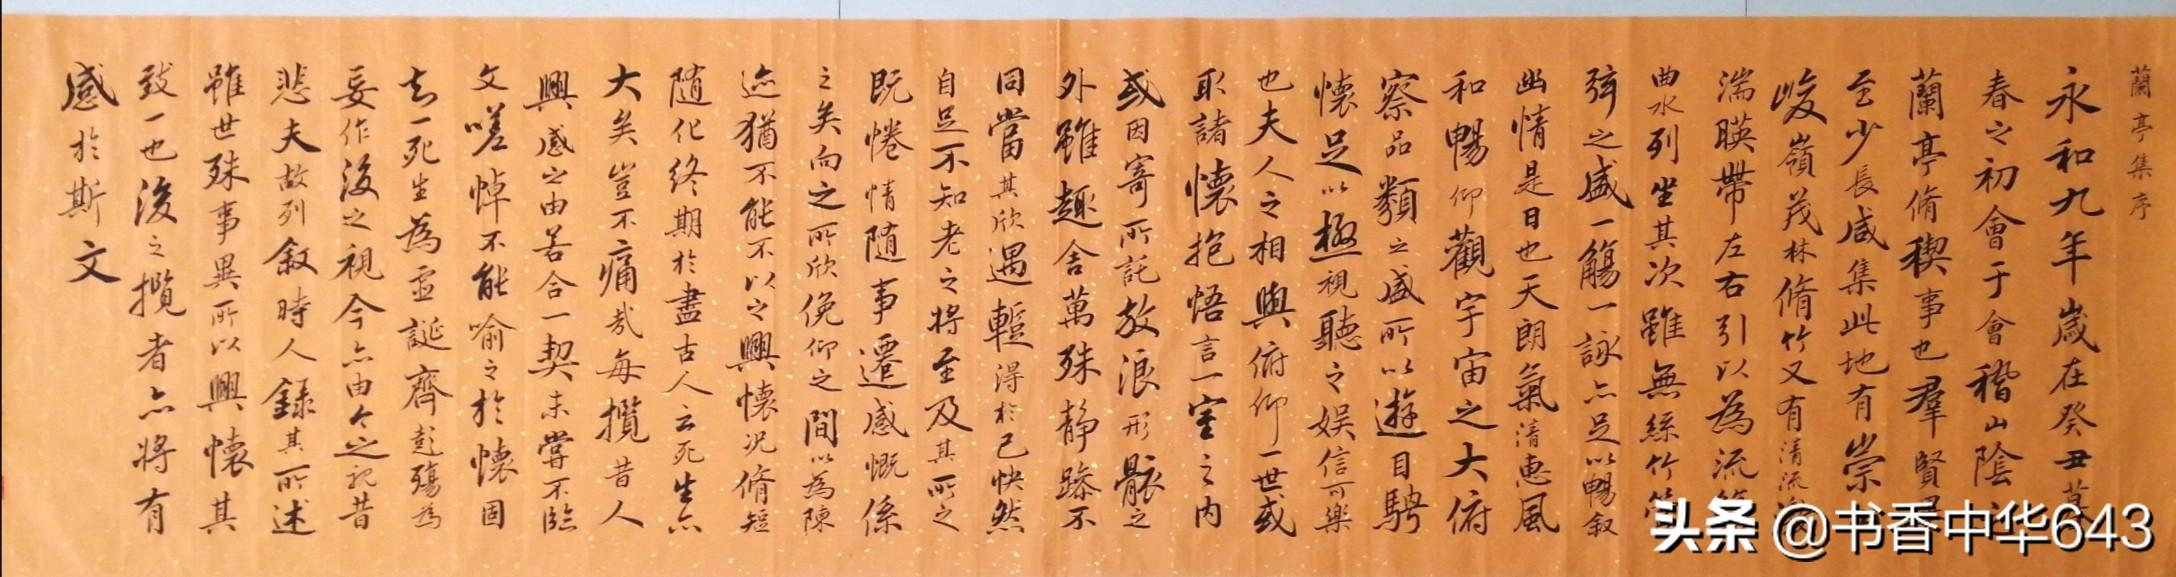 蘭亭集序
永和九年歲在癸丑暮
春之初會于會稽山陰之
蘭亭脩稧事也羣賢畢
至少長咸集此地有崇
峻嶺茂林脩竹又有清流激
湍暎帶左右引以為流觴
曲水列坐其次雖無絲竹管
弦之盛一觴一詠亦足以暢叙
幽情是日也天朗氣清惠風
和暢仰觀宇宙之大俯
察品類之盛所以遊目騁
懷足以極視聽之娛信可樂
也夫人之相與俯仰一世或
取諸懷抱悟言一室之内
或因寄所託放浪形骸之
外雖趣舍萬殊静躁不
同當其欣遇暫得於己怏然
自足不知老之將至及其所之
既惓情隨事遷感慨係
之矣向之所欣俛仰之間以為陳
迹猶不能不以之興懷况脩短
隨化終期於盡古人云死生亦
大矣豈不痛哉每攬昔人
興感之由若合一契未嘗不臨
文嗟悼不能喻之於懷固
知一死生為虚誕齊彭殤為
妄作後之視今亦由今之視昔
悲夫故列叙時人錄其所述
雖世殊事異所以興懷其
致一也後之攬者亦將有
感於斯文
头条 @书香中华643